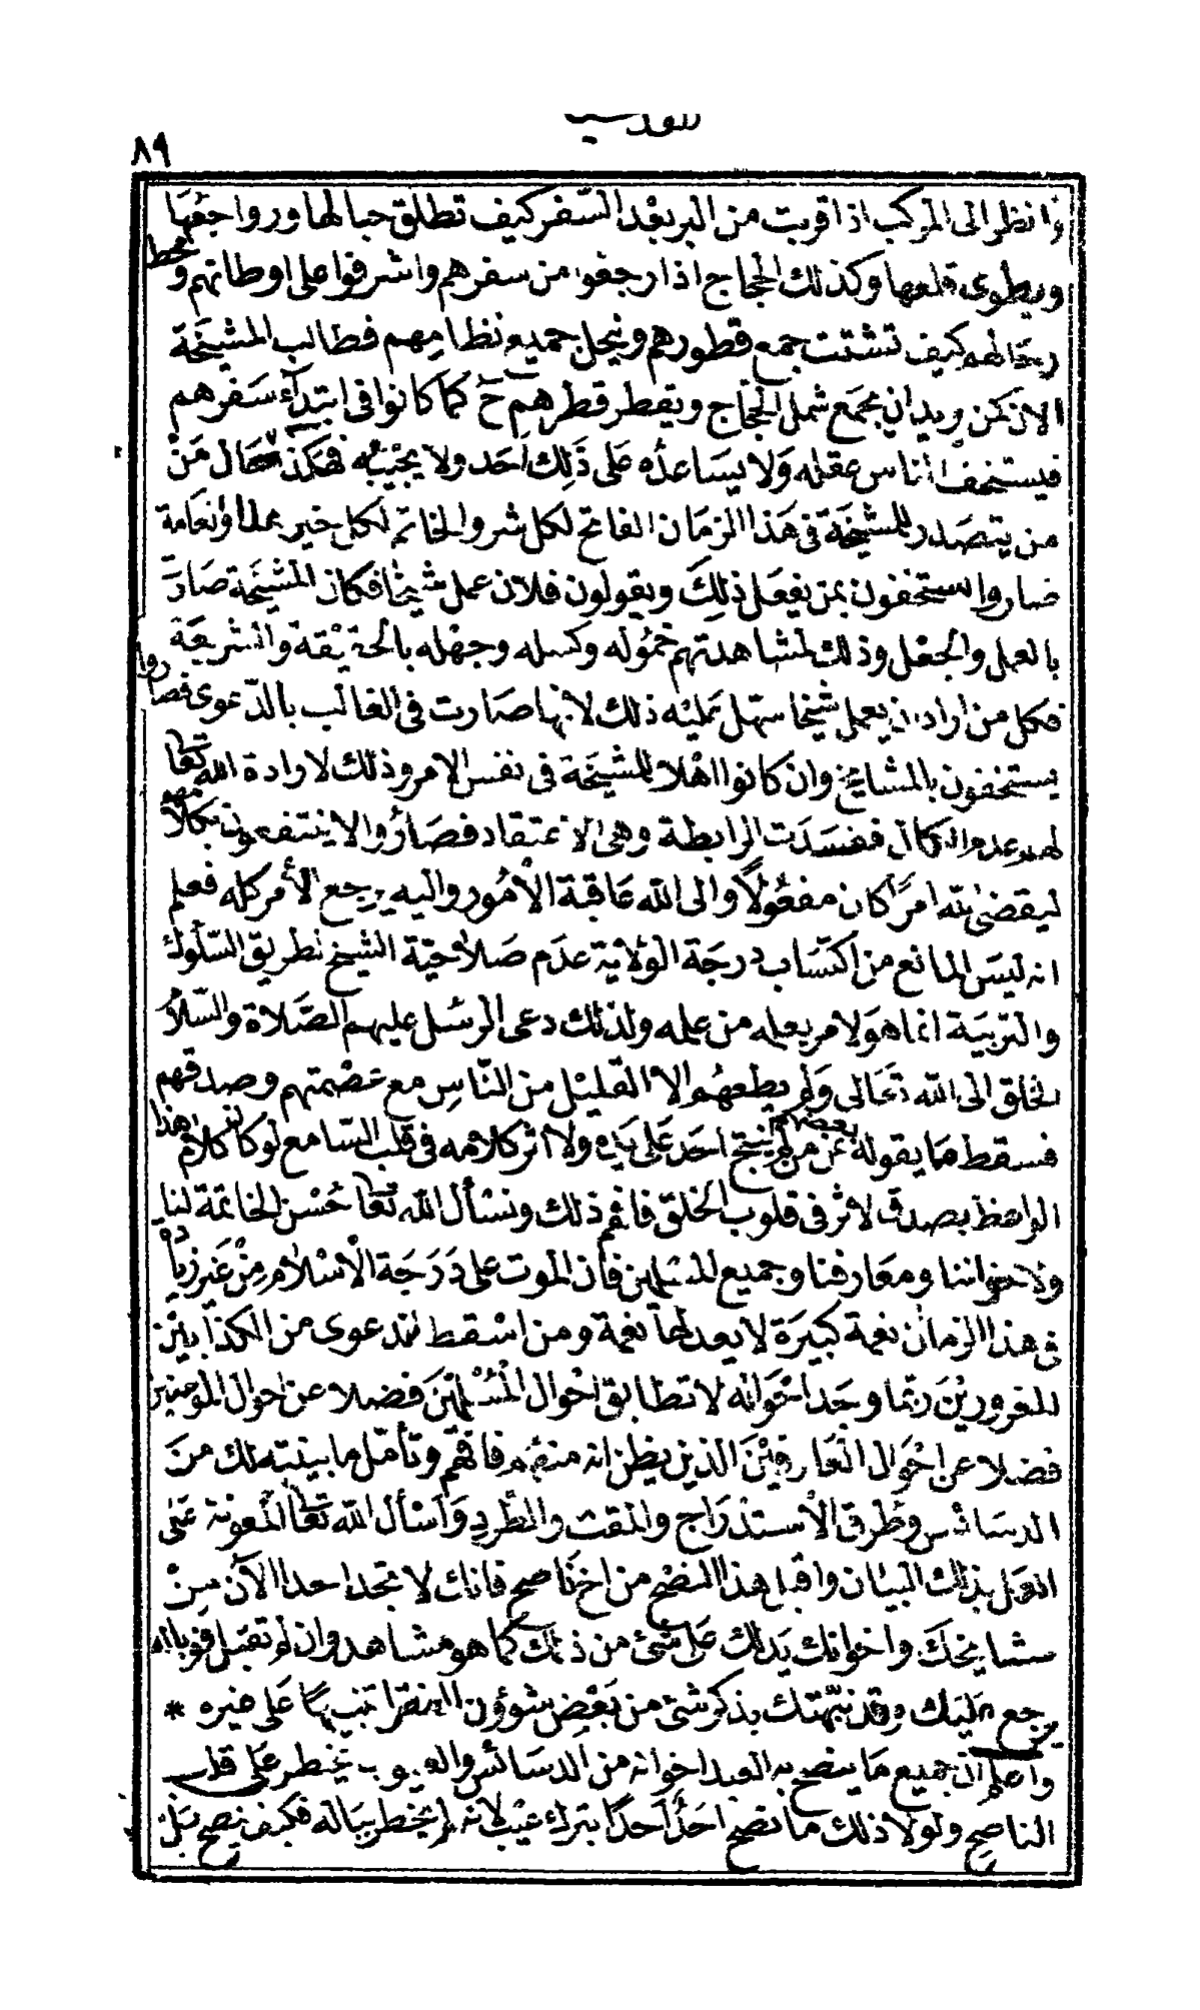 القدسية
٨٩
وانظر الى المركب اذا قربت من البر بعد السفر كيف تطلق حبالها ورواجعها
ويطوى قلعها وكذلك الحجاج اذا رجعوا من سفرهم واشرفوا على اوطانهم ومحط
رحالهم كيف تشتت جمع قطورهم وينحل جميع نظامهم فطالب المشيخة
الان كمن يريد ان يجمع شمل الحجاج ويقطر قطرهم ح كما كانوا فى ابتداء سفرهم
فيستخف الناس عقله ولا يساعده على ذلك احد ولا يجيبه فهكذا حال من
من يتصدر للمشيخة فى هذا الزمان الفاتح لكل شر والخاتم لكل خير
صاروا يستخفون بمن يفعل ذلك ويقولون فلان عمل شيخا فكان المشيخة صارت
بالعمل والجعل وذلك لمشاهدتهم خموله وكسله وجهله بالحقيقة والشريعة
فكل من اراد ان يعمل شيخا سهل عليه ذلك لانها صارت فى الغالب بالدعوى فصاروا
يستخفون بالمشايخ وان كانوا اهلا للمشيخة فى نفس الامر وذلك لارادة الله تعالى
لهم عدم الكمال ففسدت الرابطة وهى الاعتقاد فصاروا لا ينتفعون بكلامهم
ليقضى الله امرا كان مفعولا والى الله عاقبة الامور واليه يرجع الأمر كله فعلم
انه ليس المانع من اكتساب درجة الولاية عدم صلاحية الشيخ لطريق السلوك
والتربية انما هو لامر يعلمه من علمه ولذلك دعى الرسل عليهم الصلاة والسلام
الخلق الى الله تعالى ولم يطعهم الا القليل من الناس مع عصمتهم وصدقهم
فسقط ما يقوله بعضهم عمن لم ينتج احد على يديه ولا اثر كلامه فى قلب السامع لو كان كلام هذا
الواعظ بصدق لاثر فى قلوب الخلق فافهم ذلك ونسأل الله تعالى حسن الخاتمة لنا
ولاخواننا ومعارفنا وجميع المسلمين فان الموت على درجة الاسلام من غير زيادة
فى هذا الزمان نعمة كبيرة لا يعدلها نعمة ومن اسقط الدعوى من الكذابين
المغرورين ربما وجد احواله لا تطابق احوال المسلمين فضلا عن احوال المومنين
فضلا عن احوال العارفين الذين يظن انه منهم فافهم وتأمل ما بينته لك من
الدسائس وطرق الاستدراج والمقت والطرد واسأل الله تعالى المعونة على
العمل بذلك البيان واقبل هذا النصح من اخ ناصح فانك لا تجد احدا الآن من
مشايخك واخوانك يدلك على شئ من ذلك كما هو مشاهد وان لم تقبل فوباله
يرجع عليك وقد نبهتك بذكر شئ من بعض شوؤن الفقرا تنبيها على غيره *
واعلم ان جميع ما ينصح به العبد اخوانه من الدسائس والعيوب يخطر على قلب
الناصح ولولا ذلك ما نصح احدٌ احدًا بترك عيب لانه لم يخطر بباله فكيف ينصح